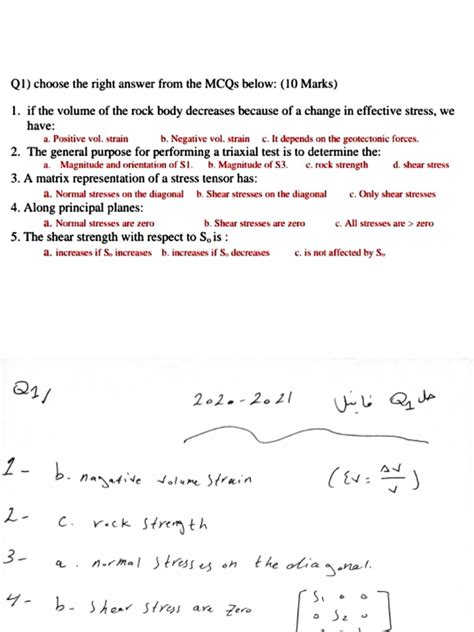 Q1) choose the right answer from the MCQs below: (10 Marks)
1. if the volume of the rock body decreases because of a change in effective stress, we
have:
a. Positive vol. strain b. Negative vol. strain c. It depends on the geotectonic forces.
2. The general purpose for performing a triaxial test is to determine the:
a. Magnitude and orientation of S1. b. Magnitude of S3. c. rock strength d. shear stress
3. A matrix representation of a stress tensor has:
a. Normal stresses on the diagonal b. Shear stresses on the diagonal c. Only shear stresses
4. Along principal planes:
a. Normal stresses are zero b. Shear stresses are zero c. All stresses are > zero
5. The shear strength with respect to Sₒ is :
a. increases if Sₒ increases b. increases if Sₒ decreases c. is not affected by Sₒ
Q1/ 2020-2021 حل Q1 فاينل
1- b. nagative volume strain (εv = Δv/v)
2- c. rock strength
3- a. normal stresses on the diagonal.
4- b- shear stress are zero [S1 0 0
0 S2 0